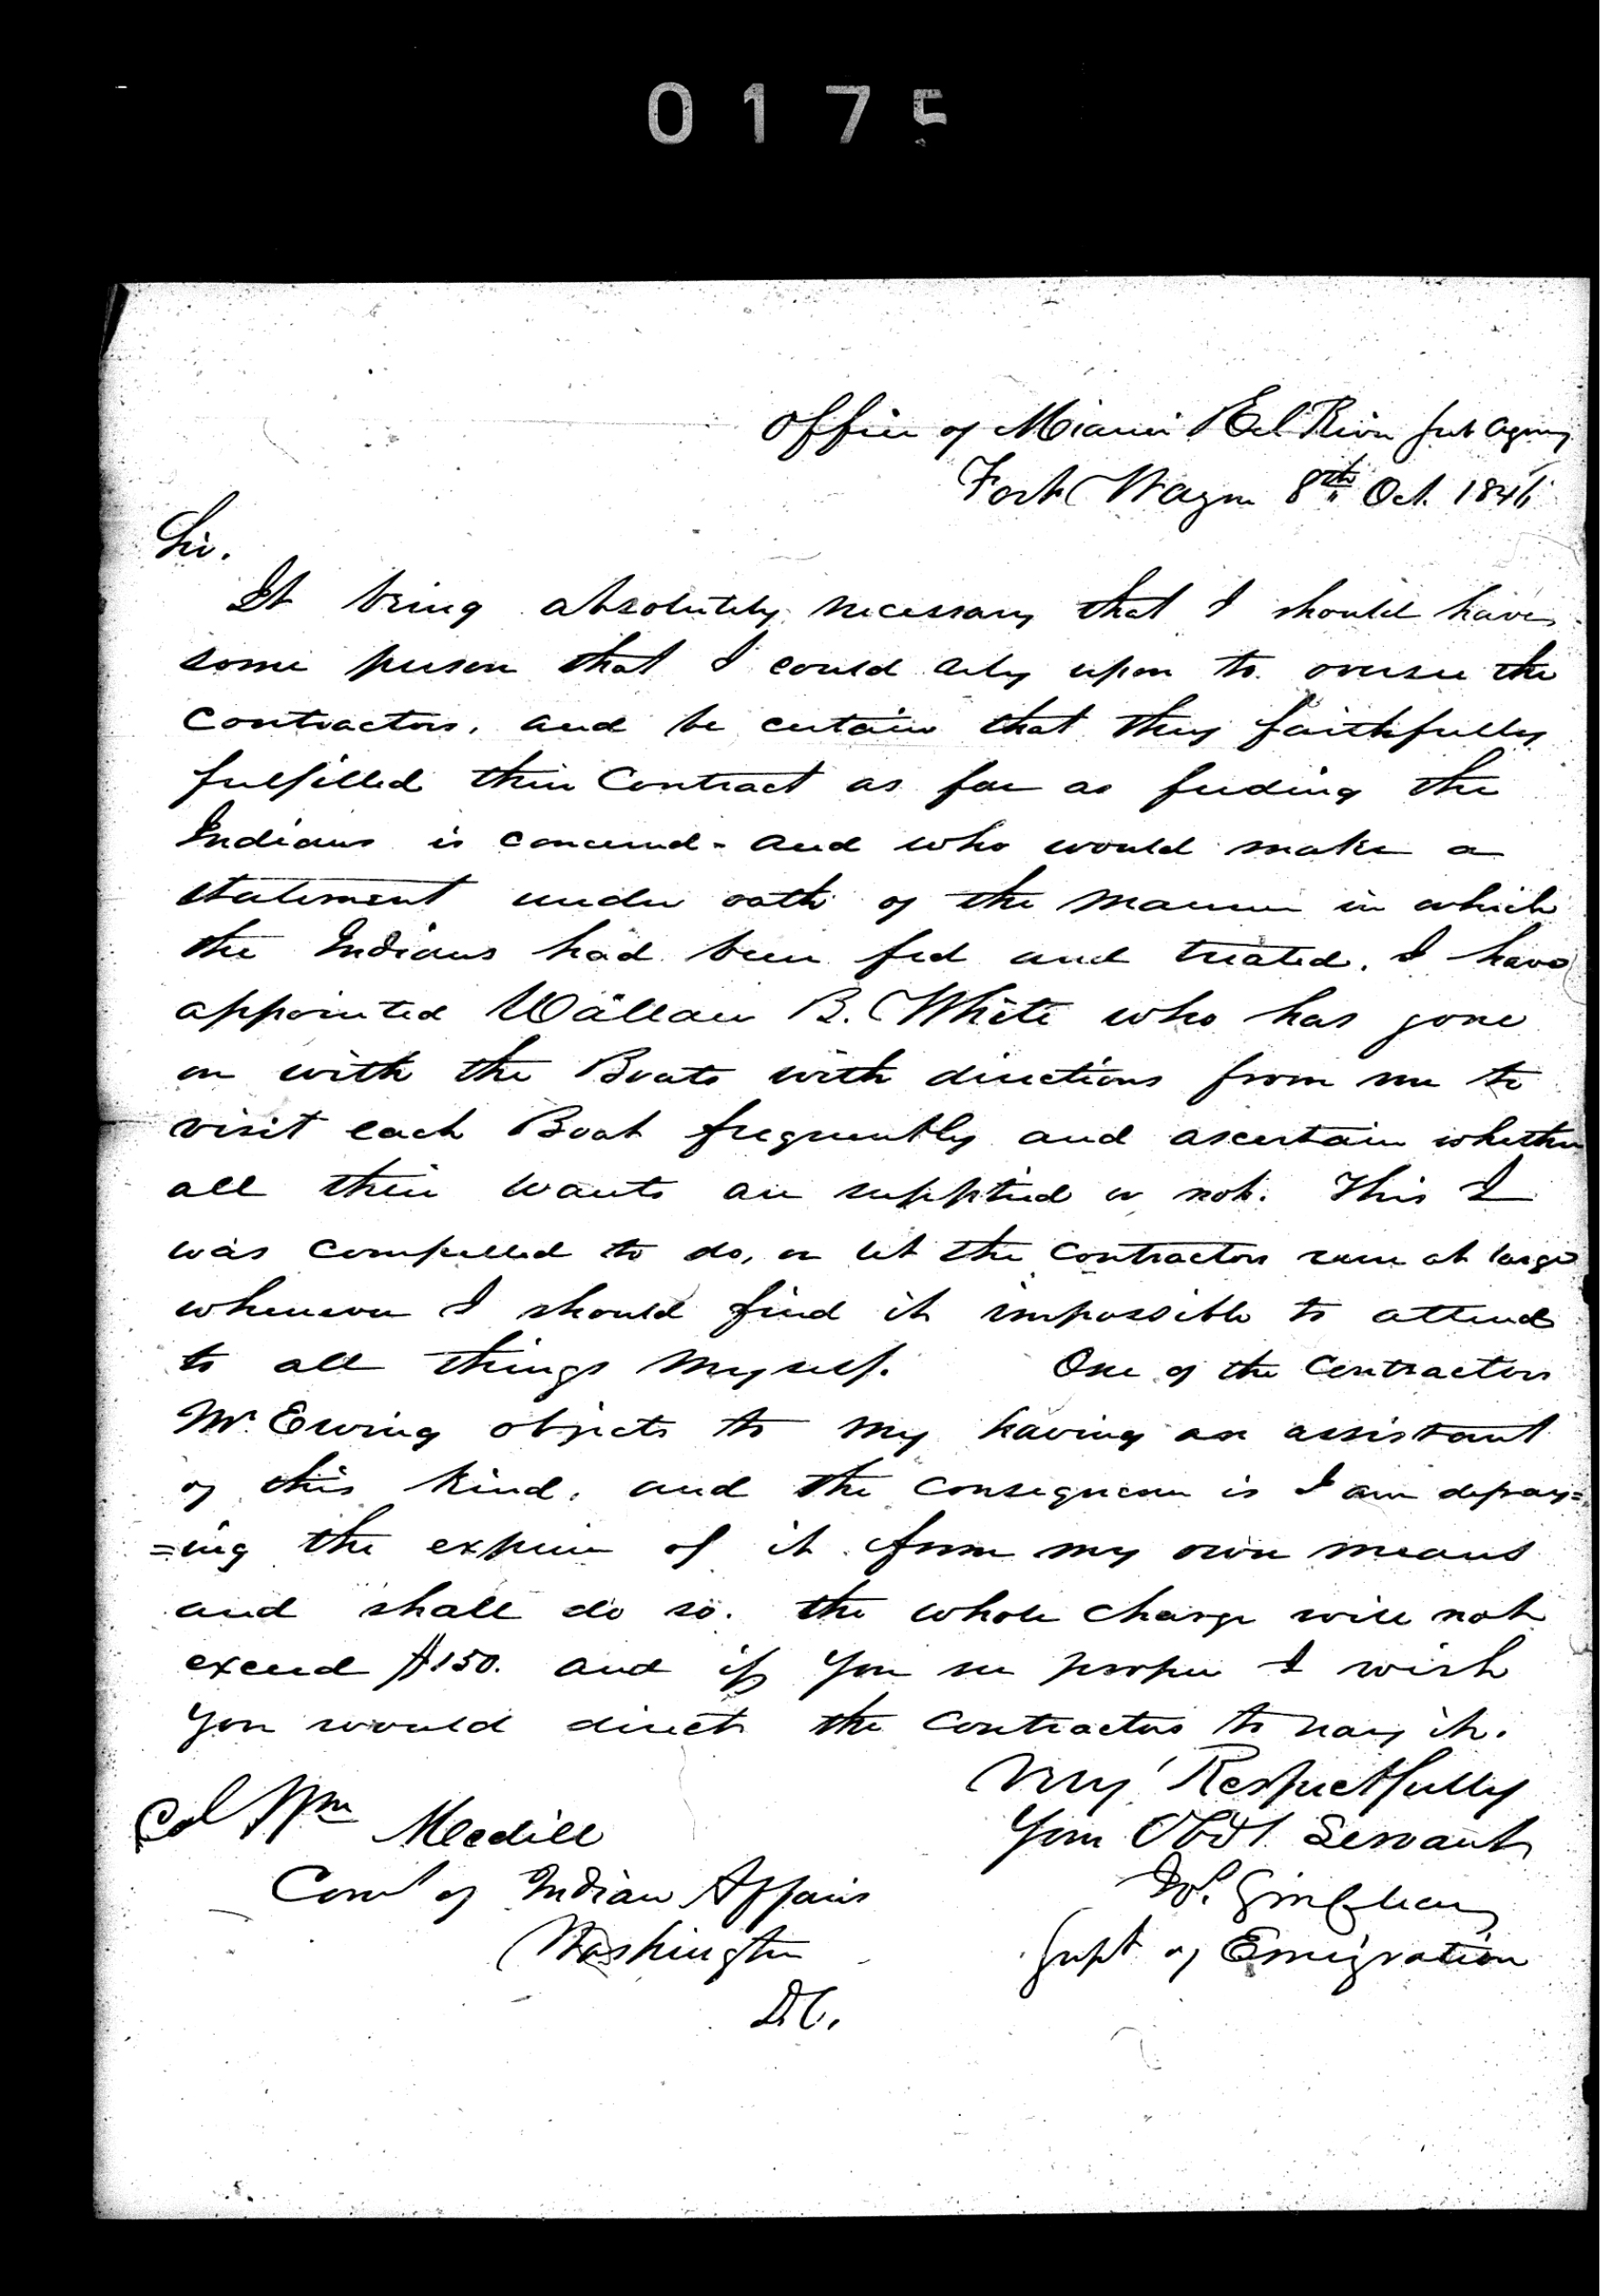 0175
Office of Miami & Eel River Sub Agency
Fort Wayne 8th Oct. 1846
Sir.
It being absolutely necessary that I should have
some person that I could rely upon to oversee the
contractors, and be certain that they faithfully
fulfilled their Contract as far as feeding the
Indians is concerned - and who would make a
statement under oath of the manner in which
the Indians had been fed and treated. I have
appointed Wallace B. White who has gone
on with the Boats with directions from me to
visit each Boat frequently and ascertain whether
all their wants are supplied or not. This I
was compelled to do, or let the contractors run at large
whenever I should find it impossible to attend
to all things myself. One of the Contractors
Mr. Ewing objects to my having an assistant
of this kind, and the consequence is I am defray=
=ing the expense of it from my own means
and shall do so. the whole charge will not
exceed $150. and if you see proper I wish
you would direct the contractors to pay it.
Very Respectfully
Your Obdt. Servant
Jos. Sinclear
Supt of Emigration
Col Wm Medill
Coms of Indian Affairs
Washington
D.C.